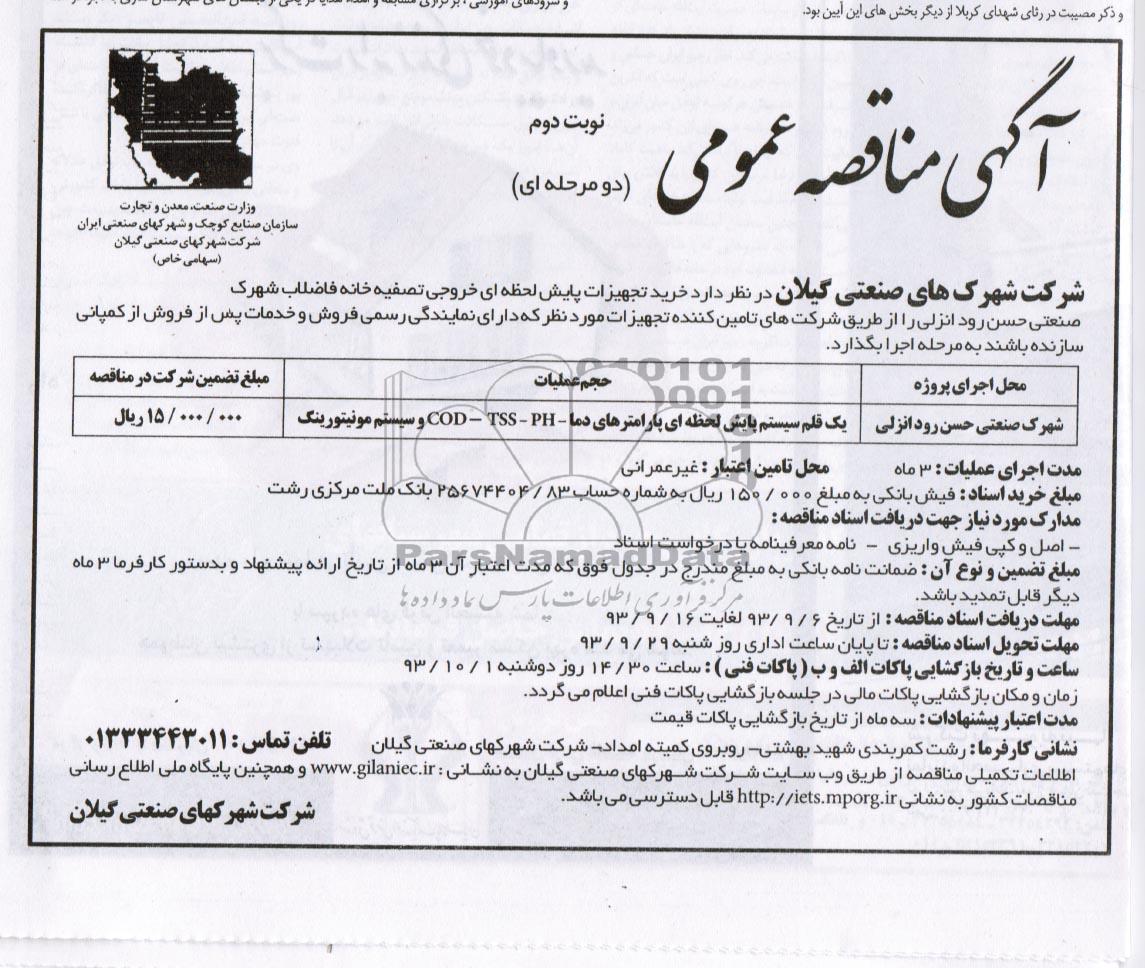 و ذکر مصیبت در رثای شهدای کربلا از دیگر بخش های این آیین بود.
آگهی مناقصه عمومی
نوبت دوم
(دو مرحله ای)
وزارت صنعت، معدن و تجارت
سازمان صنایع کوچک و شهرکهای صنعتی ایران
شرکت شهرکهای صنعتی گیلان
(سهامی خاص)
شرکت شهرک های صنعتی گیلان در نظر دارد خرید تجهیزات پایش لحظه ای خروجی تصفیه خانه فاضلاب شهرک
صنعتی حسن رود انزلی را از طریق شرکت های تامین کننده تجهیزات مورد نظر که دارای نمایندگی رسمی فروش و خدمات پس از فروش از کمپانی
سازنده باشند به مرحله اجرا بگذارد.
محل اجرای پروژه حجم عملیات مبلغ تضمین شرکت در مناقصه
شهرک صنعتی حسن رود انزلی یک قلم سیستم پایش لحظه ای پارامترهای دما - COD – TSS - PH و سیستم مونیتورینگ ۱۵/۰۰۰/۰۰۰ ریال
مدت اجرای عملیات : ۳ ماه محل تامین اعتبار : غیرعمرانی
مبلغ خرید اسناد : فیش بانکی به مبلغ ۱۵۰/۰۰۰ ریال به شماره حساب ۲۵۶۷۴۴۰۴/۸۳ بانک ملت مرکزی رشت
مدارک مورد نیاز جهت دریافت اسناد مناقصه :
- اصل و کپی فیش واریزی - نامه معرفینامه یا درخواست اسناد
مبلغ تضمین و نوع آن : ضمانت نامه بانکی به مبلغ مندرج در جدول فوق که مدت اعتبار آن ۳ ماه از تاریخ ارائه پیشنهاد و بدستور کارفرما ۳ ماه
دیگر قابل تمدید باشد.
مهلت دریافت اسناد مناقصه : از تاریخ ۹۳/۹/۶ لغایت ۹۳/۹/۱۶
مهلت تحویل اسناد مناقصه : تا پایان ساعت اداری روز شنبه ۹۳/۹/۲۹
ساعت و تاریخ بازگشایی پاکات الف و ب ( پاکات فنی ) : ساعت ۱۴/۳۰ روز دوشنبه ۹۳/۱۰/۱
زمان و مکان بازگشایی پاکات مالی در جلسه بازگشایی پاکات فنی اعلام می گردد.
مدت اعتبار پیشنهادات : سه ماه از تاریخ بازگشایی پاکات قیمت
نشانی کارفرما : رشت کمربندی شهید بهشتی – روبروی کمیته امداد – شرکت شهرکهای صنعتی گیلان تلفن تماس : ۰۱۳۳۳۴۴۳۰۱۱
اطلاعات تکمیلی مناقصه از طریق وب سایت شرکت شهرکهای صنعتی گیلان به نشانی : www.gilaniec.ir و همچنین پایگاه ملی اطلاع رسانی
مناقصات کشور به نشانی http://iets.mporg.ir قابل دسترسی می باشد.
شرکت شهرکهای صنعتی گیلان
ParsNamadData
مرکز فرآوری اطلاعات پارس نماد داده ها